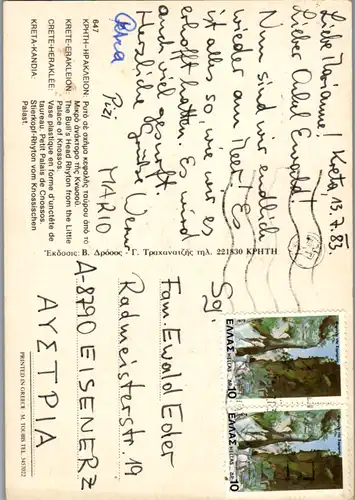 847
ΚΡΗΤΗ-ΗΡΑΚΛΕΙΟΝ: Ρυτό σέ σχήμα κεφαλής ταύρου από το
Μικρό ανάκτορο της Κνωσού.
KRETE-ERAKLEION: The Bull's Head Rhyton from the Little
Palace of Knossos.
CRETE-HERAKLEE: Vase plastique en forme d'un tête de
taureau. Petit Palais de Cnossos.
KRETA-KANDIA: Stierkopf-Rhyton vom Knossischen
Palast.
Kreta 13.7.83
Liebe Marianne!
Lieber Onkel Ewald!
Nun sind wir endlich
wieder am Meer! Es
ist alles so, wie wir es
erhofft hatten. Es wird
auch viel gesurft.
Herzliche Grüße
Pizi MARIO
Petra
Έκδοσις: Β. Δρόσος - Γ. Τραχανατζής τηλ. 221830 ΚΡΗΤΗ
ΕΛΛΑΣ
HELLAS
ΔΡ. 10
ΕΛΛΑΣ
HELLAS
ΔΡ. 10
Fam. Ewald Eder
Radmeisterstr. 19
A-8790 EISENERZ
ΑΥΣΤΡΙΑ
PRINTED IN GREECE - M. TOUBIS TEL. 3457022